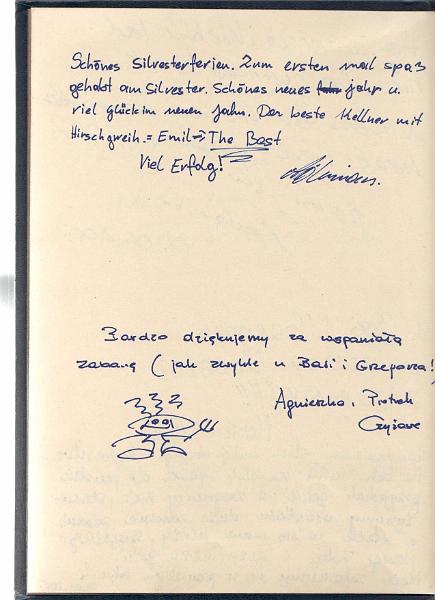 Schönes Silvesterferien. Zum ersten mal spaß
gehabt am Silvester. Schönes neues jahr u.
viel Glück im neuen Jahn. Der beste Kellner mit
Hirschgweih. = Emil → The Best
Viel Erfolg!
Bardzo dziękujemy za wspaniałą
zabawę (jak zwykle u Basi i Grzegorza!)
Agnieszka i Piotrek